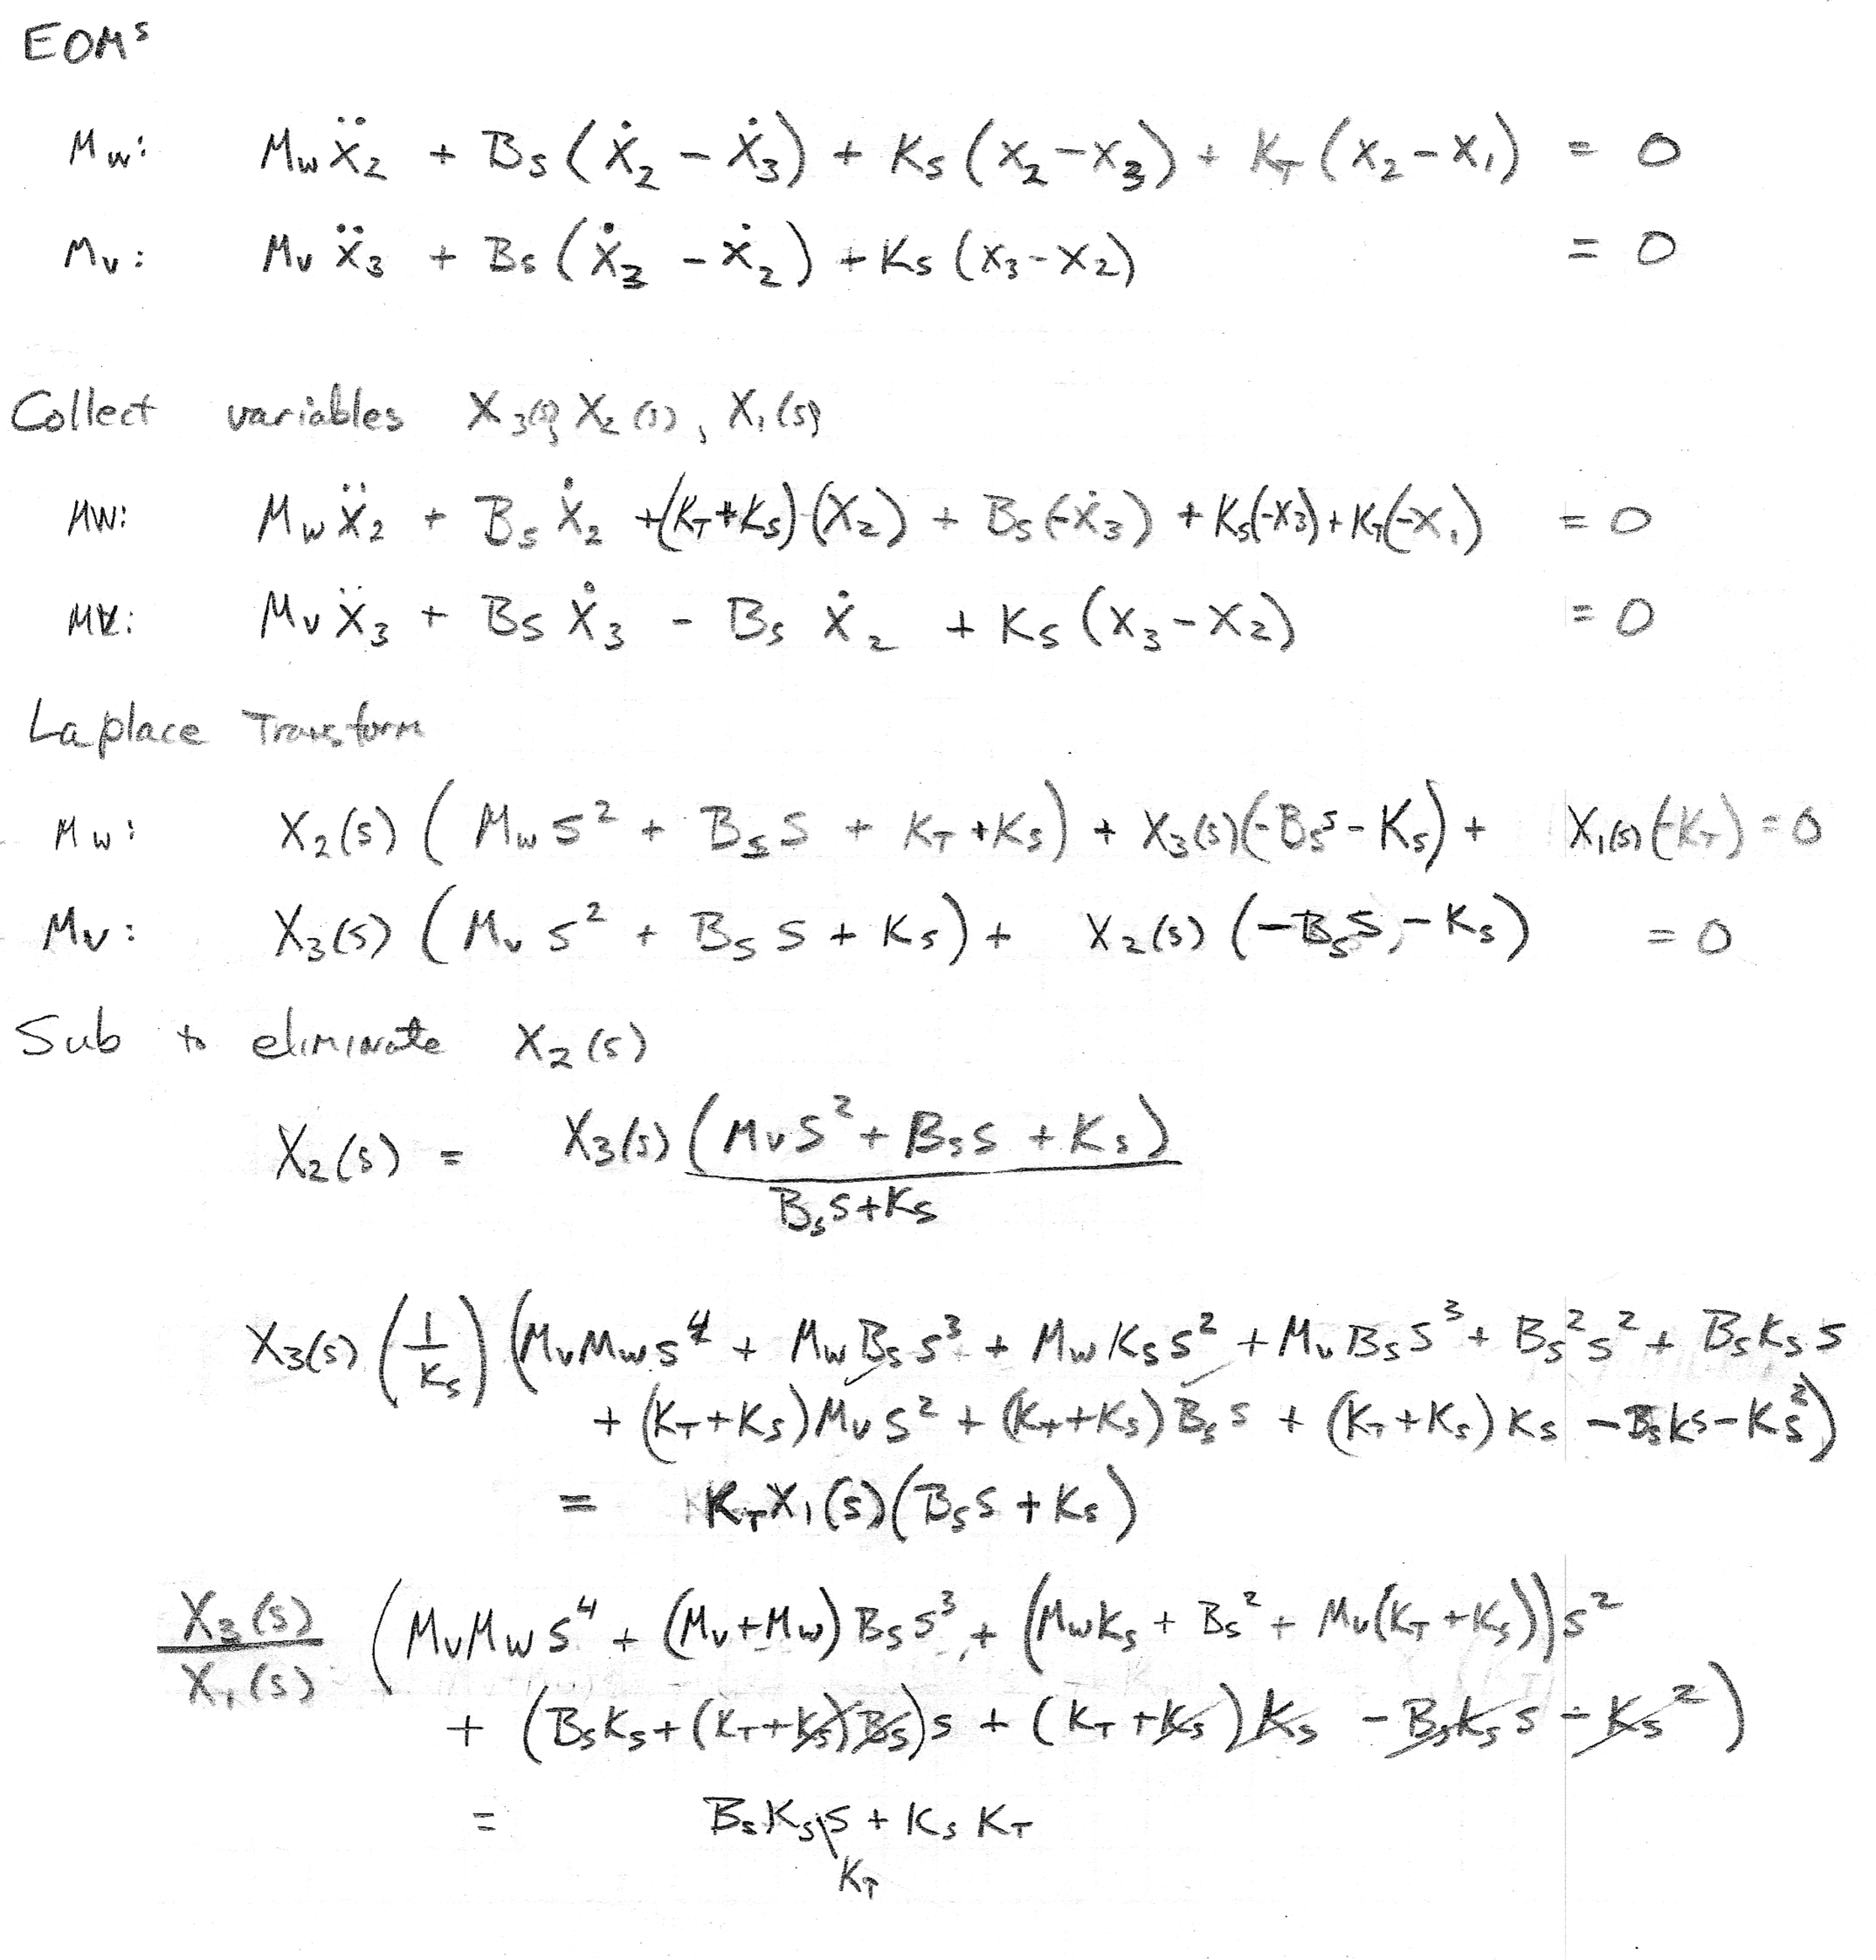 EOMs
Mw: Mwẍ2 + Bs(ẋ2 − ẋ3) + Ks(x2−x3) + KT(x2−x1) = 0
Mv: Mvẍ3 + Bs(ẋ3 − ẋ2) + Ks(x3−x2) = 0
Collect variables X3(s), X2(s), X1(s)
MW: Mwẍ2 + Bsẋ2 + (KT+Ks)(X2) + Bs(−ẋ3) + Ks(−x3) + KT(−x1) = 0
MV: Mvẍ3 + Bsẋ3 − Bsẋ2 + Ks(x3−x2) = 0
Laplace Transform
Mw: X2(s)(Mws² + Bss + KT+Ks) + X3(s)(−Bss−Ks) + X1(s)(−KT) = 0
Mv: X3(s)(Mvs² + Bss + Ks) + X2(s)(−Bss−Ks) = 0
Sub to eliminate X2(s)
X2(s) = X3(s)(Mvs² + Bss + Ks)
Bss+Ks
X3(s)(1/Ks)(MvMws⁴ + MwBss³ + MwKss² + MvBss³ + Bs²s² + BsKss
+ (KT+Ks)Mvs² + (KT+Ks)Bss + (KT+Ks)Ks − Bsks − Ks²)
= KTX1(s)(Bss + Ks)
X3(s)/X1(s) (MvMws⁴ + (Mv+Mw)Bss³ + (MwKs + Bs² + Mv(KT+Ks))s²
+ (BsKs + (KT+Ks)Bs)s + (KT+Ks)Ks − BsKss − Ks²)
= BsKss + KsKT
KT